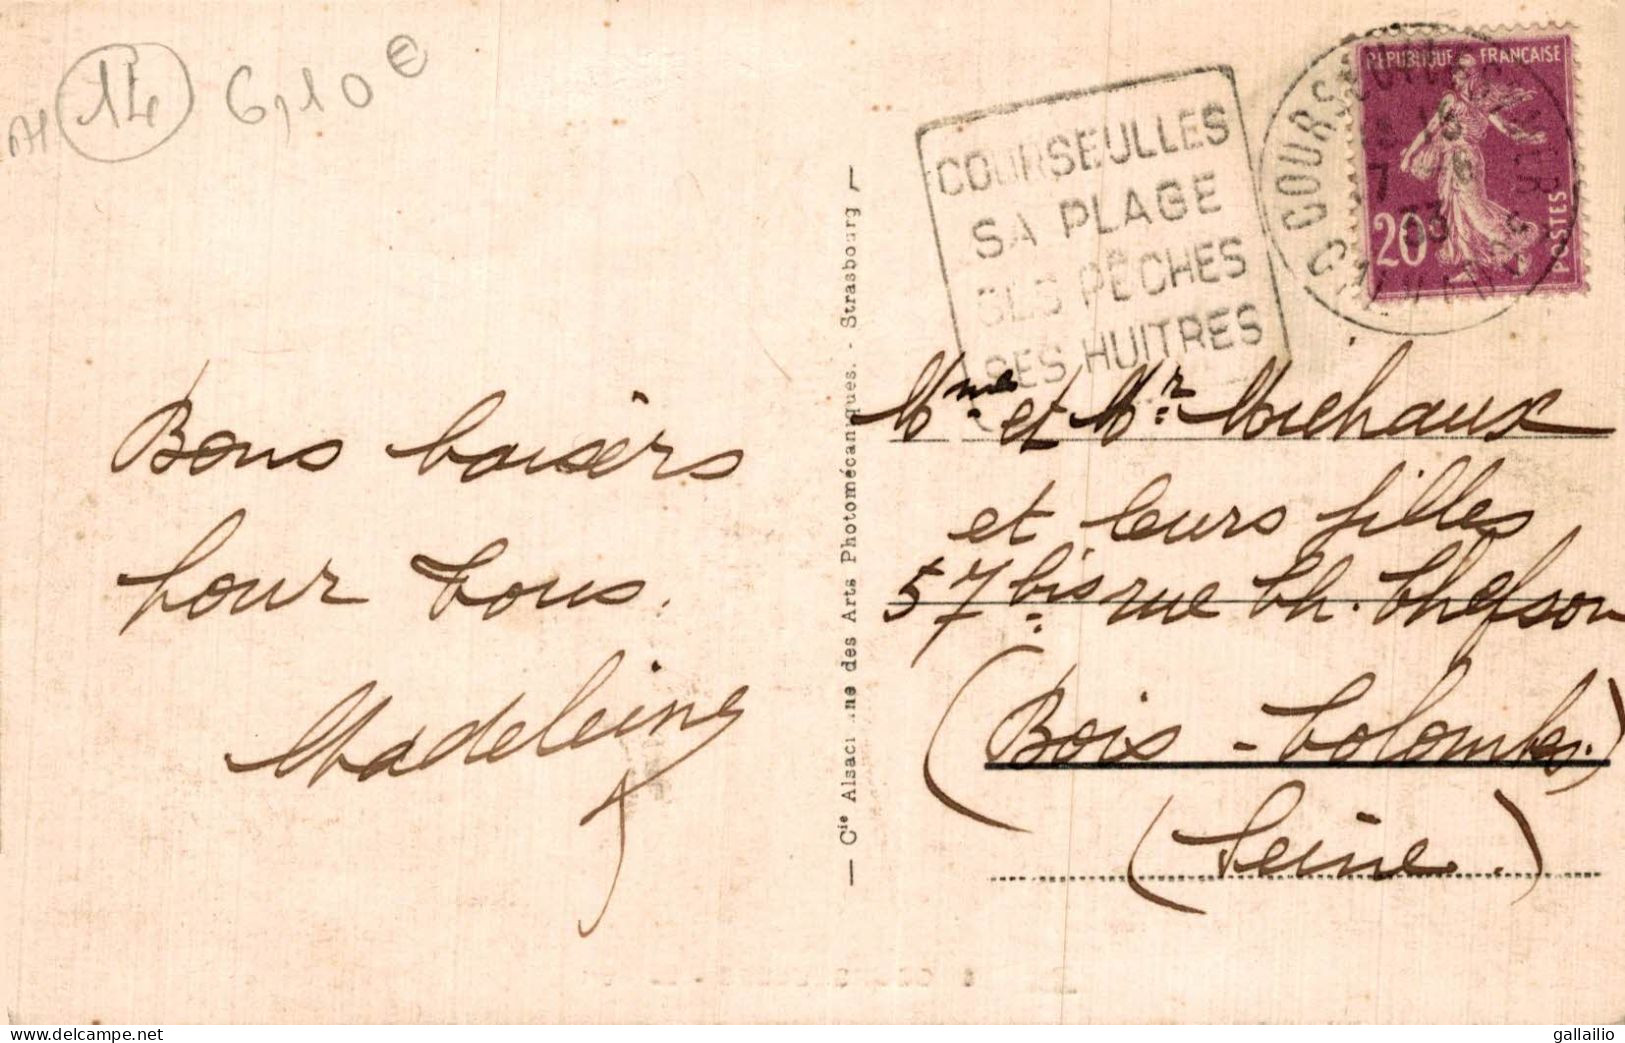 14
6,10€
COURSEULLES
SA PLAGE
SES PÊCHES
SES HUITRES
COURSEULLES S MER
CALVADOS
7 33
REPUBLIQUE FRANÇAISE
20
POSTES
Bons baisers
pour tous.
Madeleine
— Cie Alsacienne des Arts Photomécaniques. - Strasbourg —
Mme et Mr Michaux
et leurs filles
57 bis rue Ch. Chefson
(Bois-Colombes.)
(Seine.)
delcampe.net
gallailio